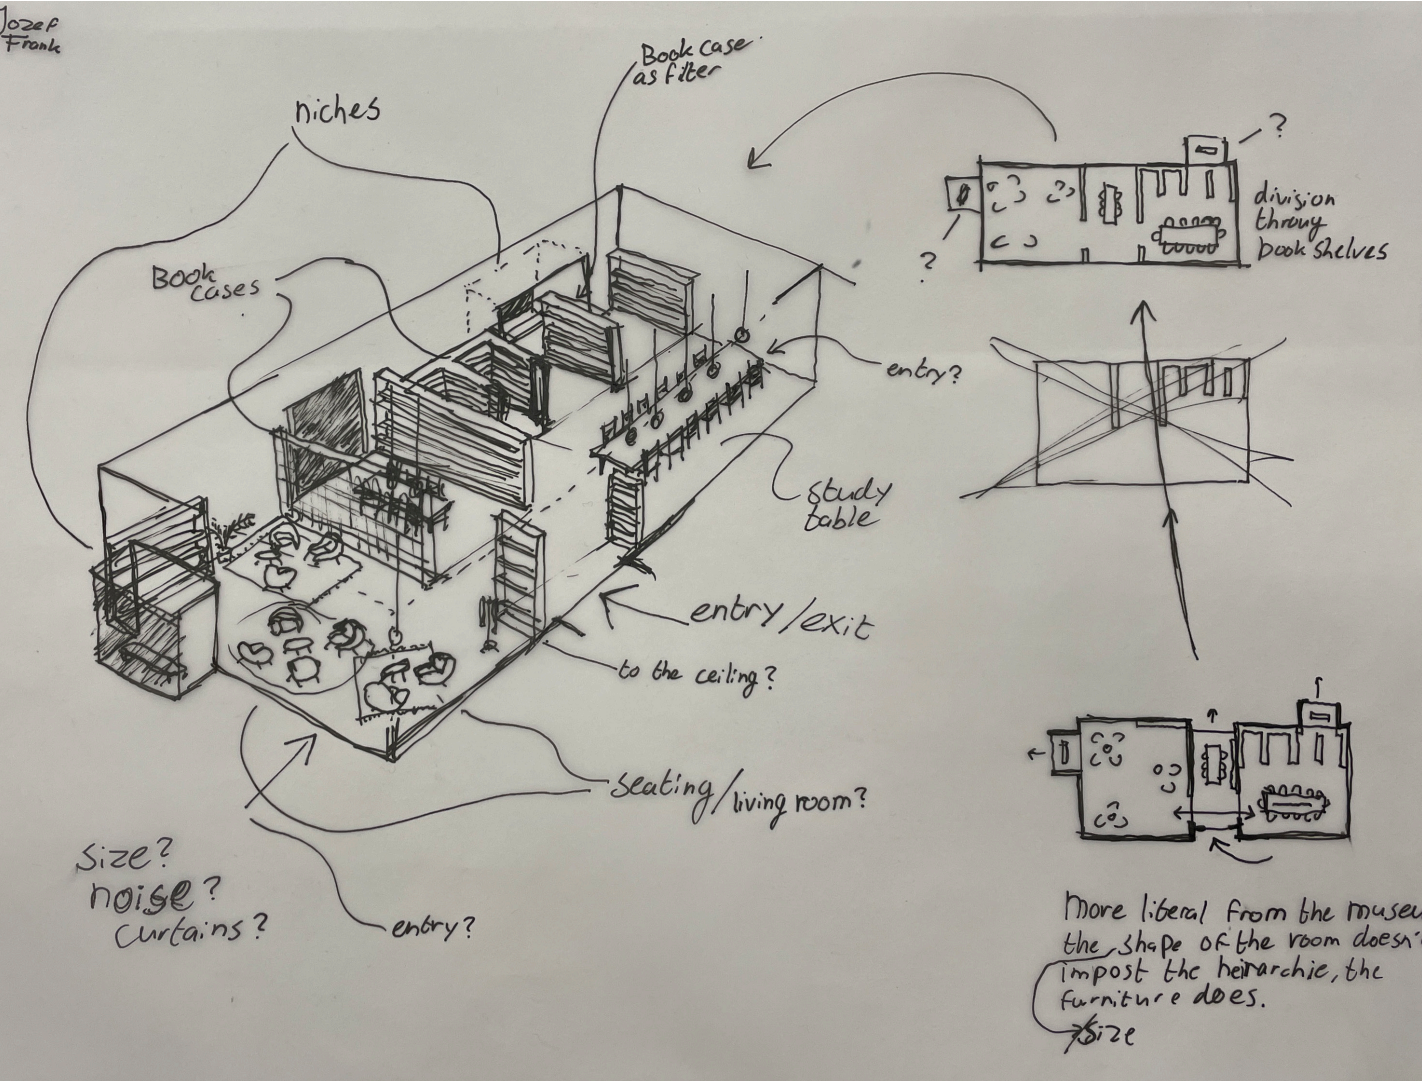 Jozef
Frank
Book case
as filter
niches
?
Book
cases
division
throug
book shelves
?
entry?
study
table
entry/exit
to the ceiling?
seating/living room?
size?
noise?
curtains?
entry?
More literal from the museu
the shape of the room doesn'
impost the heirarchie, the
furniture does.
/size